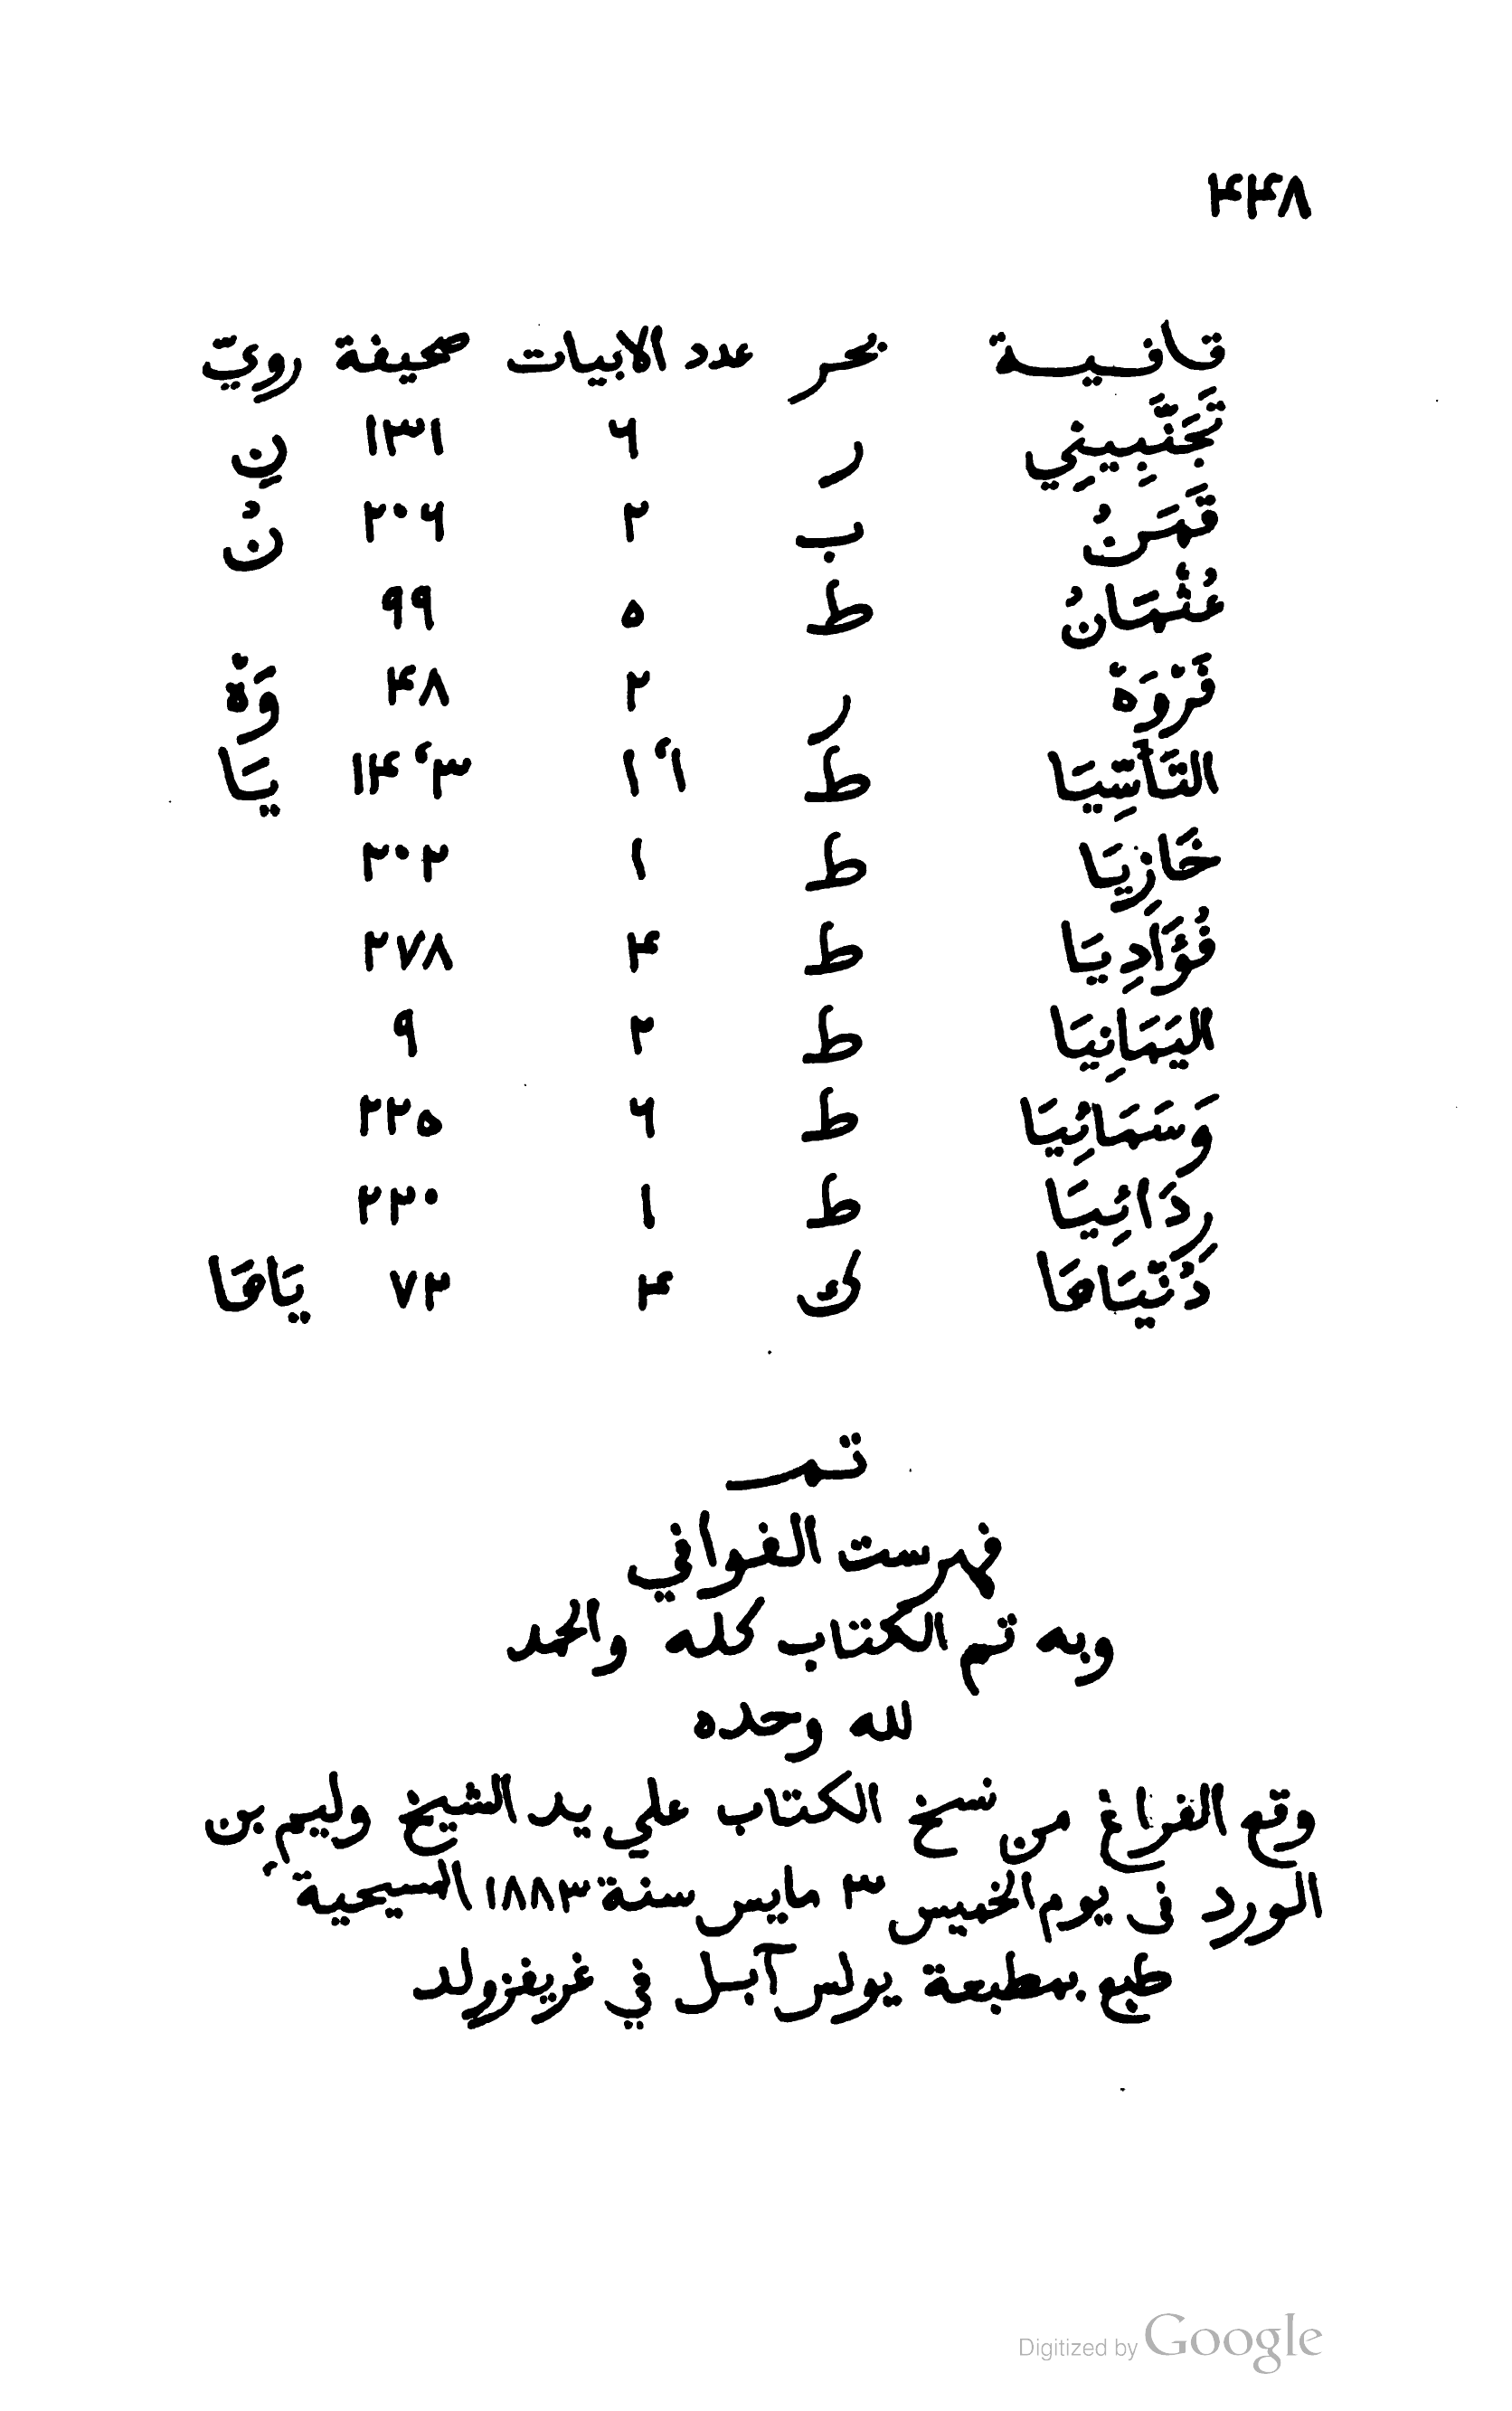 ۴۴۸
قافية بحر عدد الابيات صحيفة رويّ
تَجَنَّبِينِي ر ٦ ١٣١ نِ
قَمَنُ ب ٢ ٢٠٦ نُ
عُثْمَانُ ط ٥ ٩٩
فَرْوَةْ ر ٢ ۴٨ وَةْ
التَّأَسِّيَا ط ١،١ ١۴،٣ يَا
خَازِيَا ط ١ ٢٠٢
فُؤَادِيَا ط ۴ ٢٧٨
اليَمَانِيَا ط ٢ ٩
وَسَمَائِيَا ط ٦ ٢٢٥
رِدَائِيَا ط ١ ٢٣٠
دُنْيَاهَا ك ۴ ٧٢ يَاهَا
تم
فهرست القوافي
وبه تم الكتاب كله والحمد
لله وحده
وقع الفراغ من نسخ الكتاب علي يد الشيخ وليم بن
الورد فى يوم الخميس ٣ مايس سنة ١٨٨٣ المسيحية
طبع بمطبعة يولس آبل في غريفزولد
Digitized by Google